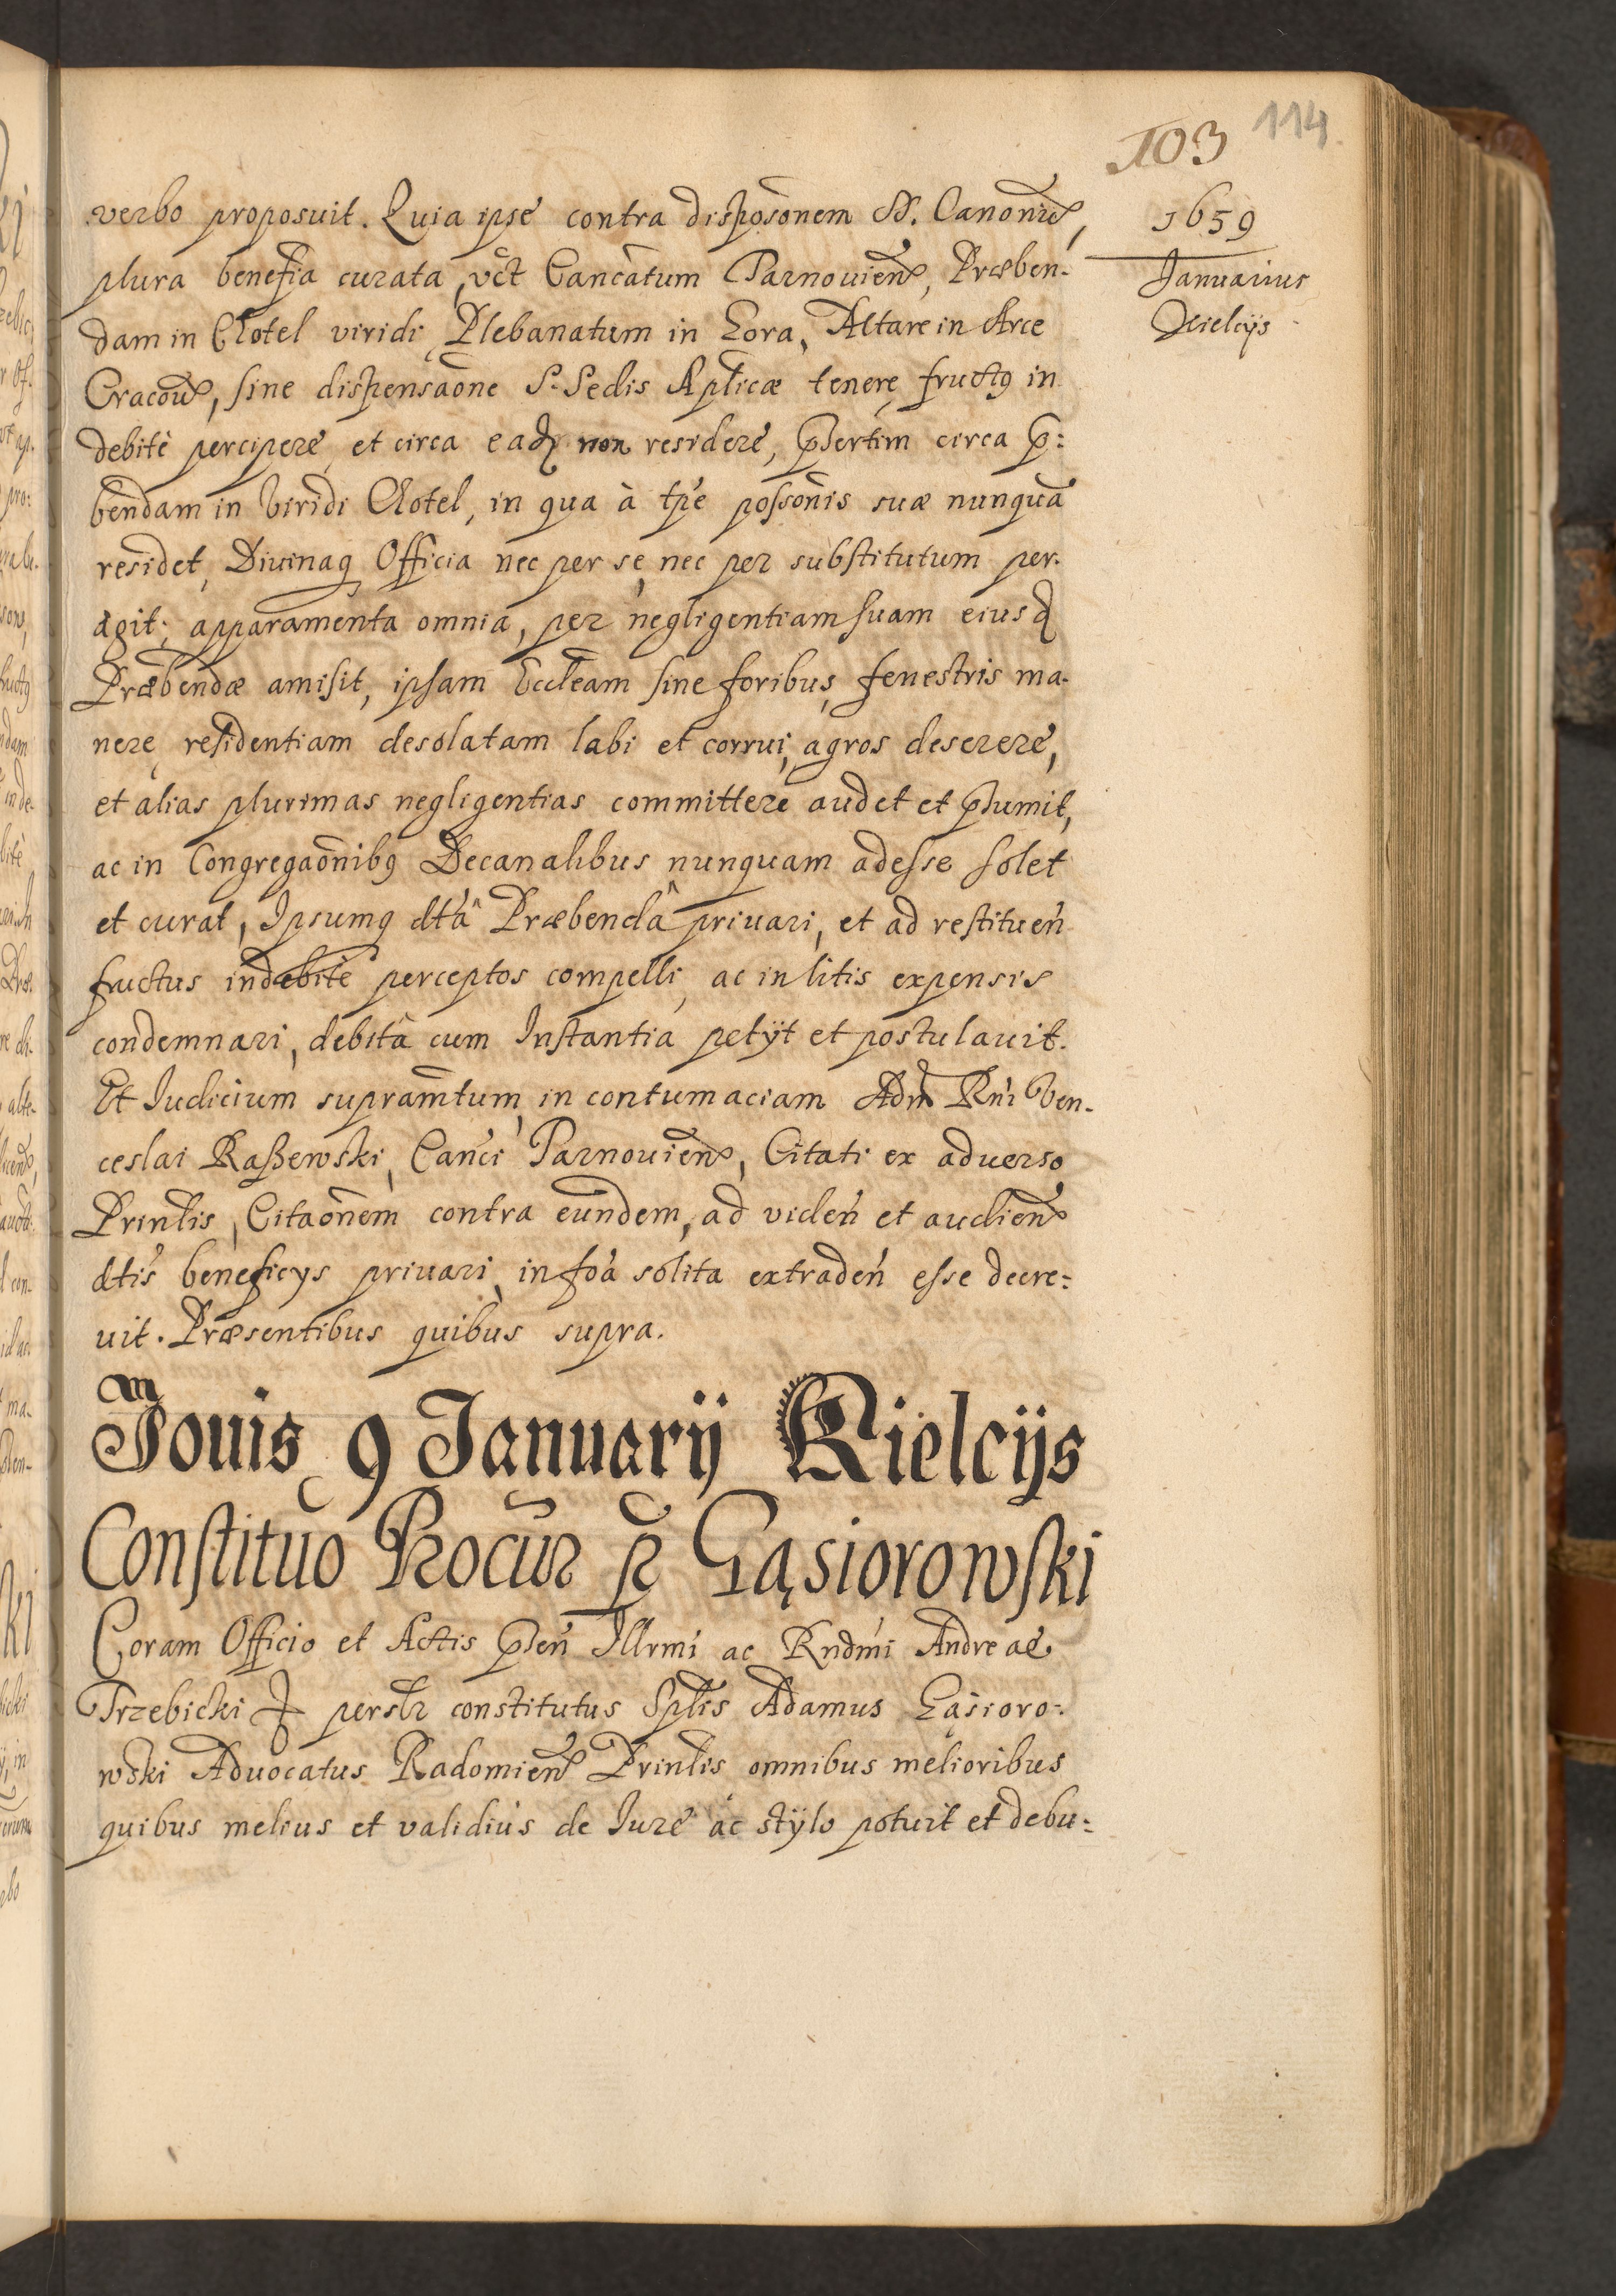 103 114
1659
Januarius
Kielcijs
verbo proposuit. Quia ipse contra disposõnem SS. Canonũ,
plura benefia curata, vĉt Cancãtum Tarnouien̄, Præben-
dam in Chotel viridi, Plebanatum in Gora, Altare in Arce
Cracou̅, sine dispensãone S. Sedis Aplicæ tenere, fructꝯ in
debitè percipere, et circa eadȝ non residere, p̃sertim circa p̃:
bendam in Viridi Chotel, in qua à tp̃e possõnis suæ nunquã
residet, Diuinaqȝ Officia nec per se, nec per substitutum per-
agit; apparamenta omnia, per negligentiam suam eiusd
Præbendæ amisit, ipsam Eccl̃eam sine foribus, fenestris ma-
nere, residentiam desolatam labi et corrui, agros deserere,
et alias plurimas negligentias committere audet et p̃sumit,
ac in Congregaõnibꝯ Decanalibus nunquam adesse solet
et curat, Ipsumqȝ dtâ Præbendâ priuari, et ad restituen̄
fructus indebitè perceptos compelli, ac in litis expensis
condemnari, debitâ cum Instantia petÿt et postulauit.
Et Iudicium supram̃tum, in contumaciam Adm̃ Rñi Ven-
ceslai Raßewski, Canci Tarnouien̄, Citati ex aduerso
Prinl̃is, Citaõnem contra eundem, ad viden̄ et audien̄
dtis beneficijs priuari, in fõa solita extraden̄ esse decre:
uit. Præsentibus quibus supra.
Jouis 9 Januarij Kielcijs
Constituo Procur̃ p̃ Gąsiorowski
Coram Officio et Actis p̃sen̄ Illrmi ac Rndmi Andreae
Trzebicki ꝑ persl̃r constitutus Spl̃is Adamus Gąsioro:
wski Aduocatus Radomien̄ Prinl̃is omnibus melioribus
quibus melius et validius de Iure ac stÿlo potuit et debu: